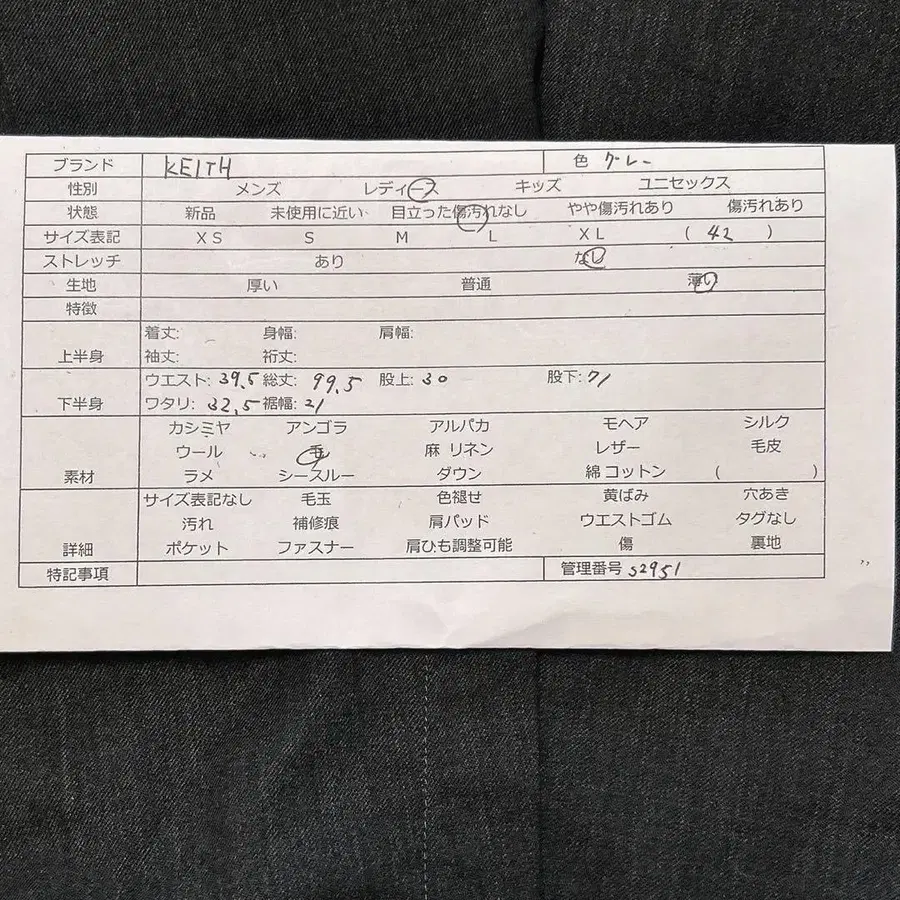 ブランド KEITH 色 グレー
性別 メンズ レディース キッズ ユニセックス
状態 新品 未使用に近い 目立った傷汚れなし やや傷汚れあり 傷汚れあり
サイズ表記 XS S M L XL ( 42 )
ストレッチ あり なし
生地 厚い 普通 薄い
特徴
上半身 着丈: 身幅: 肩幅:
袖丈: 裄丈:
下半身 ウエスト: 39.5 総丈: 99.5 股上: 30 股下: 71
ワタリ: 32.5 裾幅: 21
素材 カシミヤ アンゴラ アルパカ モヘア シルク
ウール 毛 麻 リネン レザー 毛皮
ラメ シースルー ダウン 綿 コットン ( )
詳細 サイズ表記なし 毛玉 色褪せ 黄ばみ 穴あき
汚れ 補修痕 肩パッド ウエストゴム タグなし
ポケット ファスナー 肩ひも調整可能 傷 裏地
特記事項 管理番号 S2951